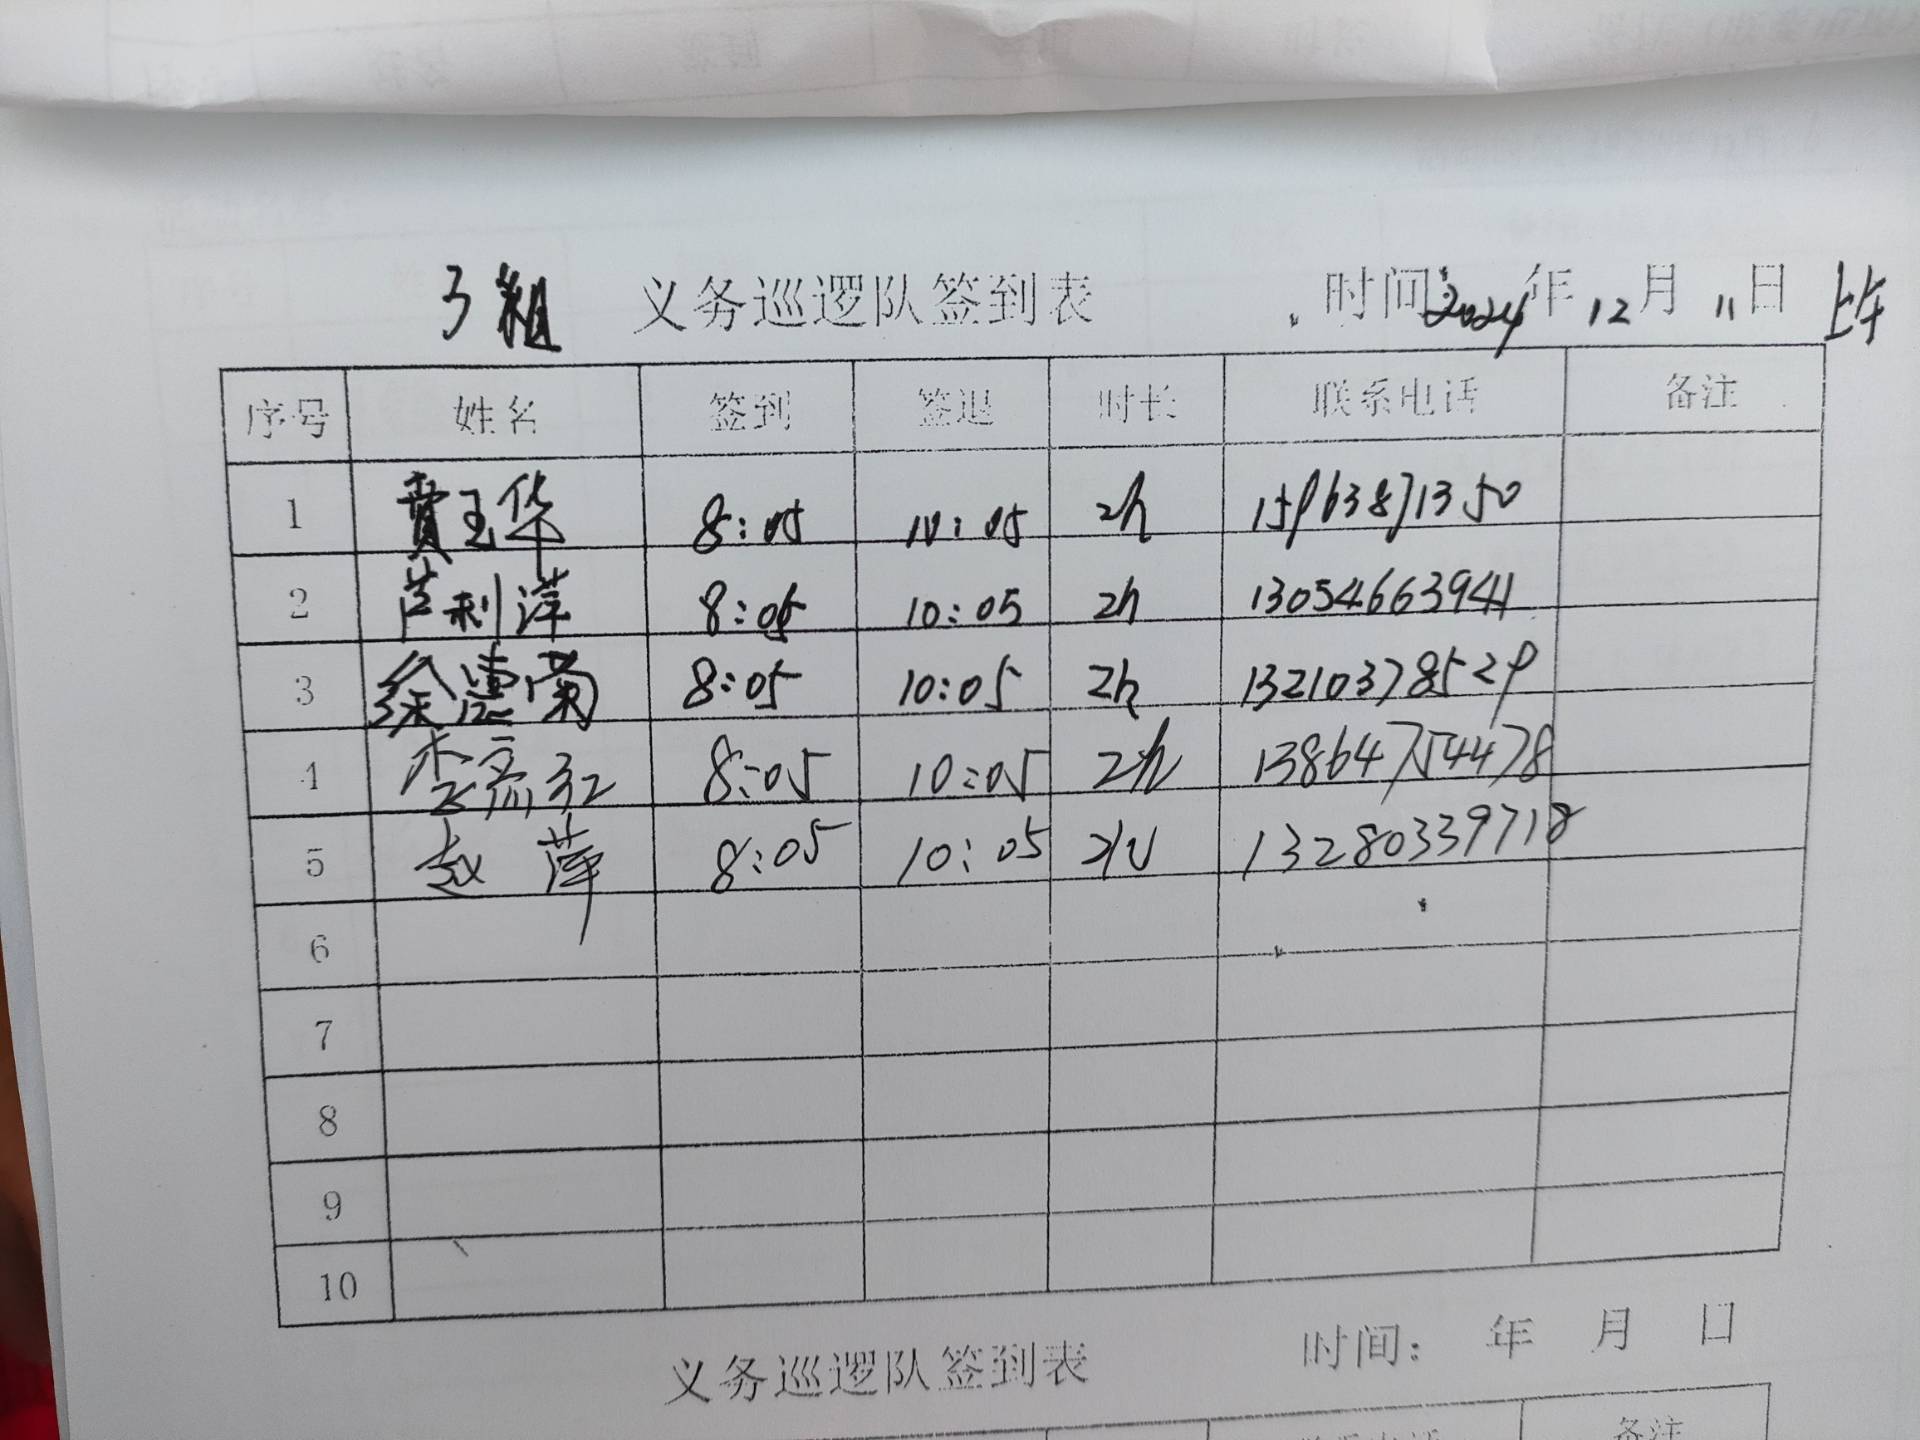 3组 义务巡逻队签到表 时间: 2024年12月11日 上午
序号 姓名 签到 签退 时长 联系电话 备注
1 贾玉华 8:05 10:05 2h 15963871350
2 芦利萍 8:05 10:05 2h 13054663941
3 徐惠菊 8:05 10:05 2h 13210378529
4 8:05 10:05 2h 13864754478
5 赵萍 8:05 10:05 13280339718
6
7
8
9
10
义务巡逻队签到表 时间: 年 月 日
备注